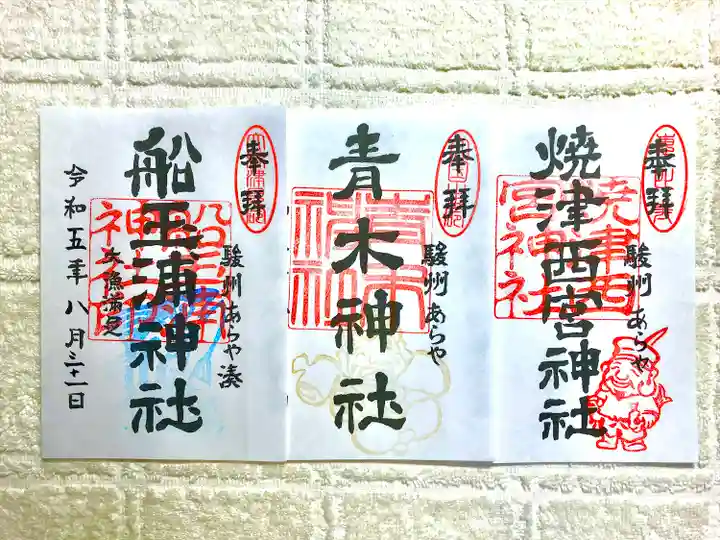 奉拝
駿州あらや
焼津西宮神社
焼津西宮神社
奉拝
駿州あらや
青木神社
青木神社
奉拝
駿州あらや湊
船玉浦神社
大漁満足
令和五年八月三十一日